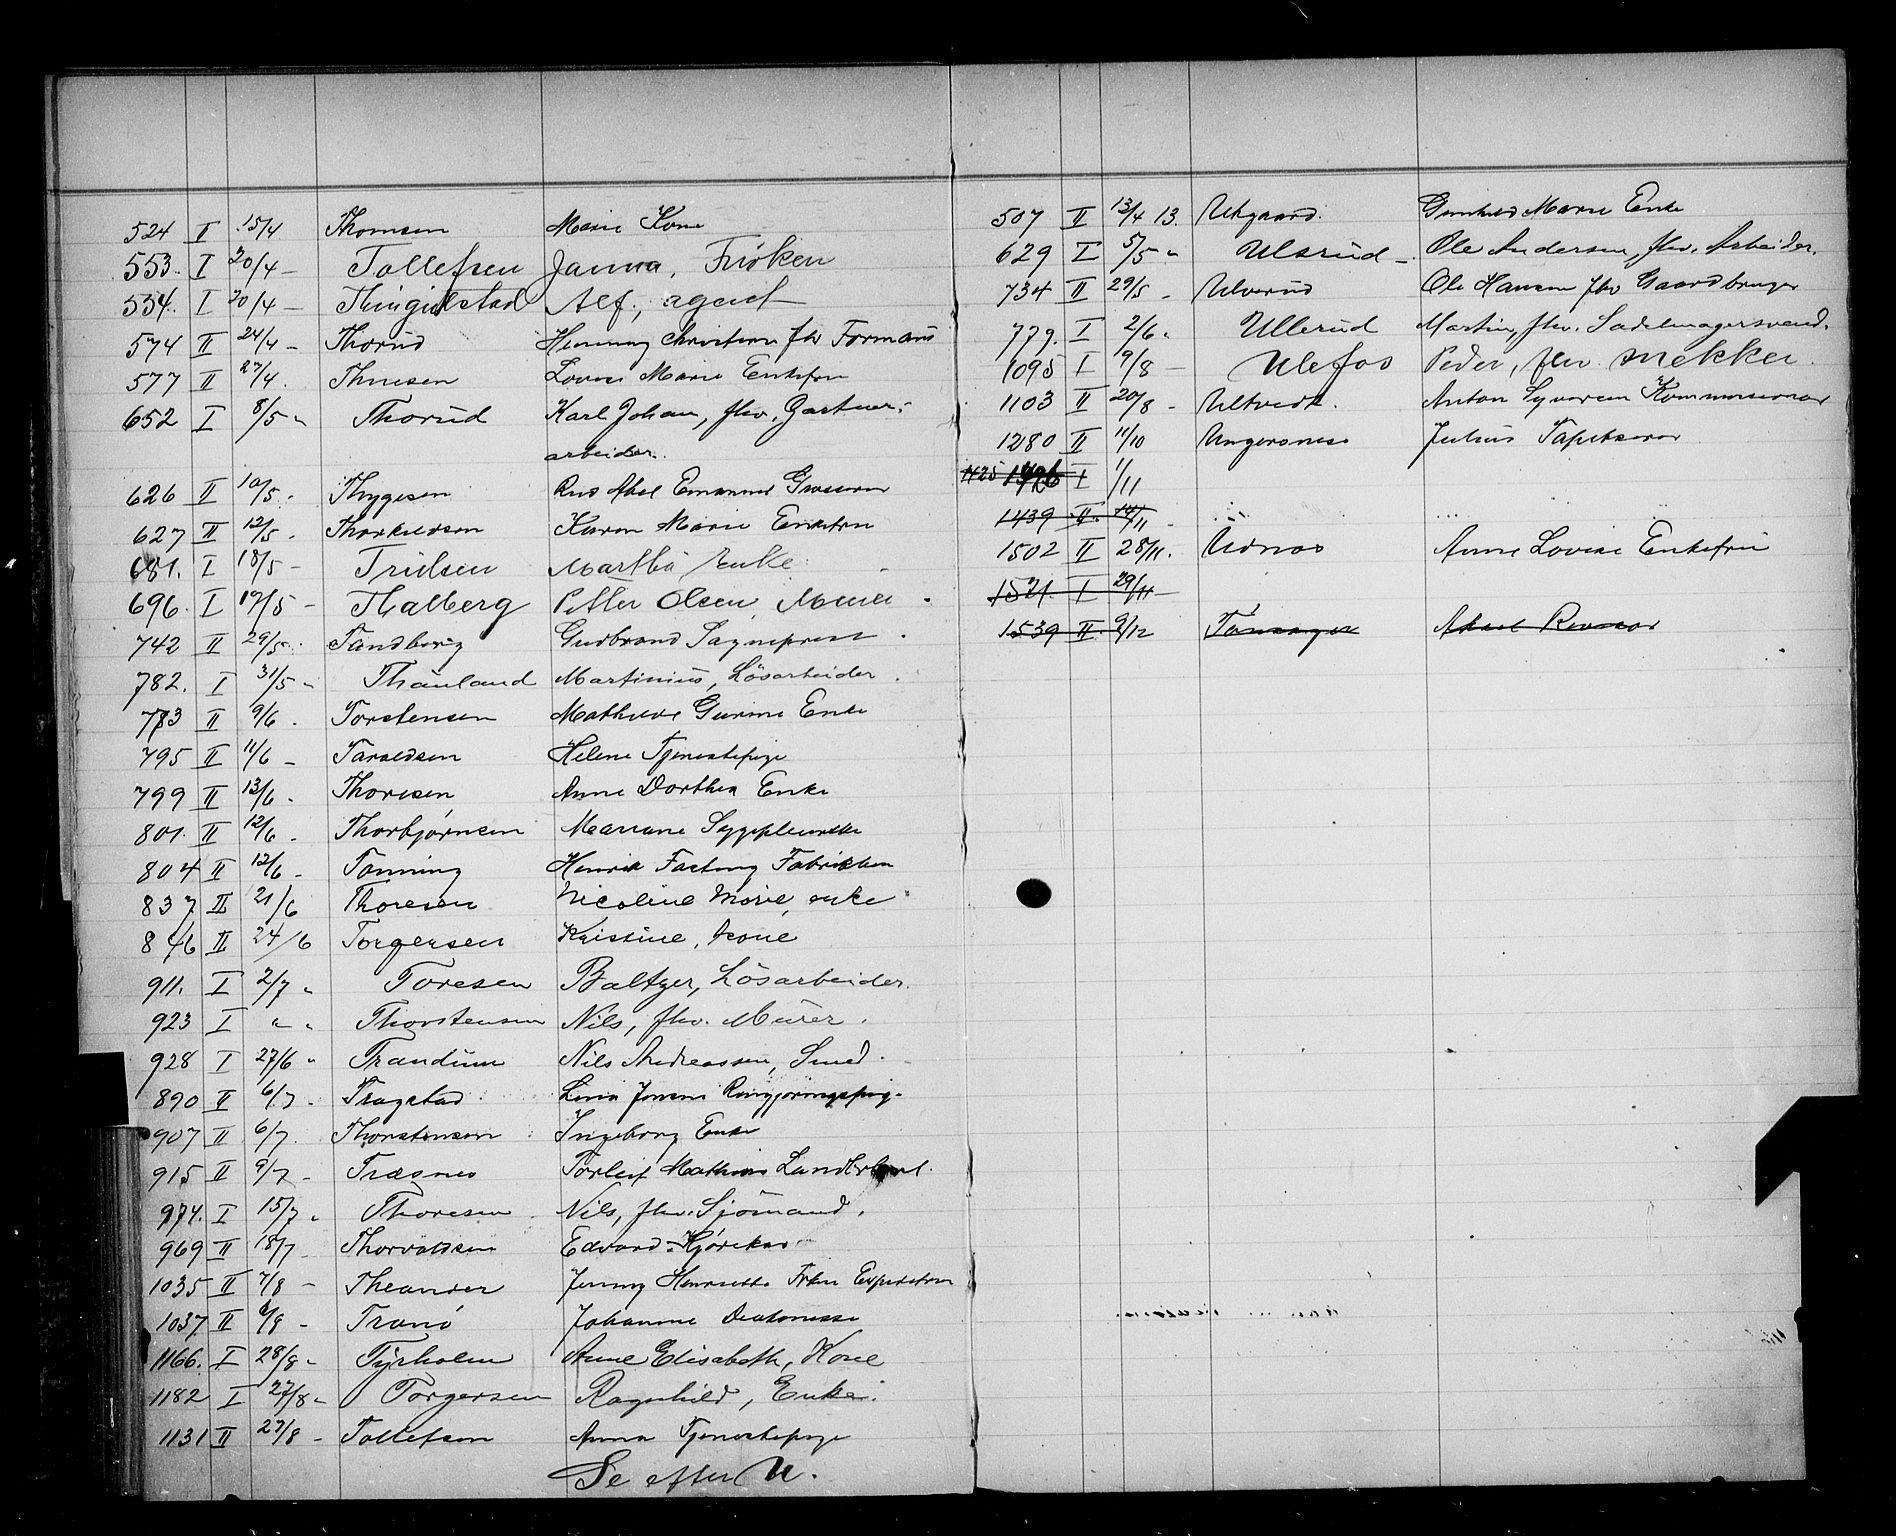 524 II 15/4 Thomsen Marie Kone
553. I 20/4 – Tollefsen Janna, Frøken
554. I 20/4 – Thingulstad Alf, agent
574 II 24/4 – Thorud Henning Christian fhv Formand
577 II 27/4. Thuesen Lovise Marie Enkefru
652 I 8/5 " Thorud Karl Johan, fhv. Gartner-
arbeider.
626 II 10/5. Thygesen Axel Emanuel Grosserer
627 II 12/5. Thorkildsen Karen Marie Enkefru
681. I 18/5 – Trulsen Martha Enke
696. I 17/5 – Thalberg Petter Olsen, Murer.
742 II 29/5. Tandberg Gudbrand Sogneprest.
782. I 31/5 " Thauland Martinius, Løsarbeider.
783 II 9/6. Torstensen Mathilde Gurine Enke
795 II 11/6 – Taraldsen Helene Tjenestepige
799 II 13/6. Thoresen Anne Dorthea Enke
801. II 12/6. Thorbjørnsen Mariane Sygepleierske
804 II 12/6 – Tønning Henrik Fabrikken
837 II 21/6 Thoresen Nicoline Marie, enke
846 II 24/6 Torgersen Kristine, kone
911. I 2/7 " Toresen Baltzer, Løsarbeider.
923 I " " Thorstensen Nils, fhv. Murer.
928 I 27/6 " Trandum Nils Andreassen, Smed.
890 II 6/7. Trøgstad Lina Rengjøringspig.
907 II 6/7. Thorstensen Ingeborg Enke
915 II 9/7 – Træsnes Torleif Mathias
974. I 15/7 " Thoresen Nils, fhv. Sjömand.
969 II 18/7 Thorvaldsen Edvard Kjørekar
1035 II 7/8 – Theander Jenny Henriette Frkn
1037 II 9/8 – Tranø Johanne Diakonisse
1166. I 28/8 " Tyrholm Anne Elisabeth, Kone
1182 I 27/8 " Torgersen Ragnhild, Enke.
1131 II 27/8 – Tollefsen Anna Tjenestepige
Se efter U.
507 II 13/4 13. Utgaard. Gunhild Marie Enke
629 I 5/5 " Ulsrud – Ole Andersen, fhv. Arbeider.
734 II 29/5 – Ulverud Ole Hansen fhv Gaardbruger
779. I 2/6 " Ullerud Martin, fhv. Sadelmagersvend.
1095 I 9/8 – Ulefos Peder, fhv Snekker.
1103 II 20/8 – Ultvedt. Anton Syversen
1280 II 11/10 Ungersness Julius Tapetserer
1425 1426 I 1/11
1439 II 14/11 –
1502 II 28/11. Udnæs Anne Lovise Enkefru
1521. I 29/11 –
1539 II 9/12 Tønsager Aksel Revisor